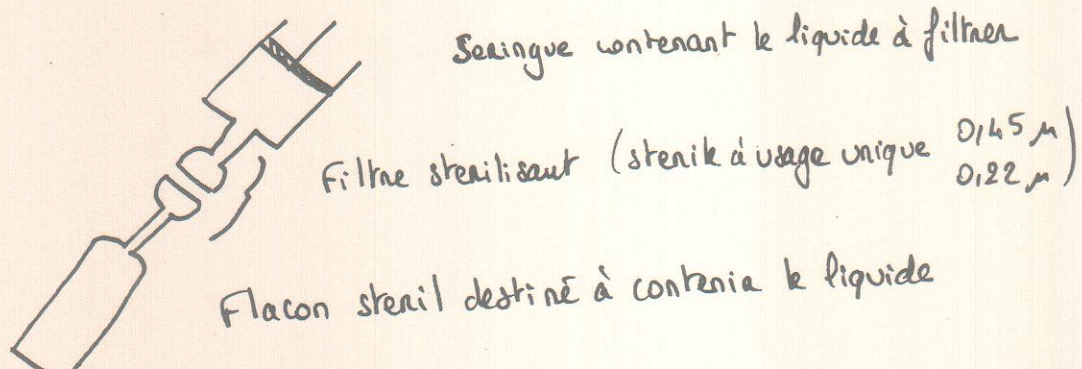 Seringue contenant le liquide à filtrer
Filtre sterilisant (sterile à usage unique 0,45 µ
0,22 µ)
Flacon steril destiné à contenir le liquide